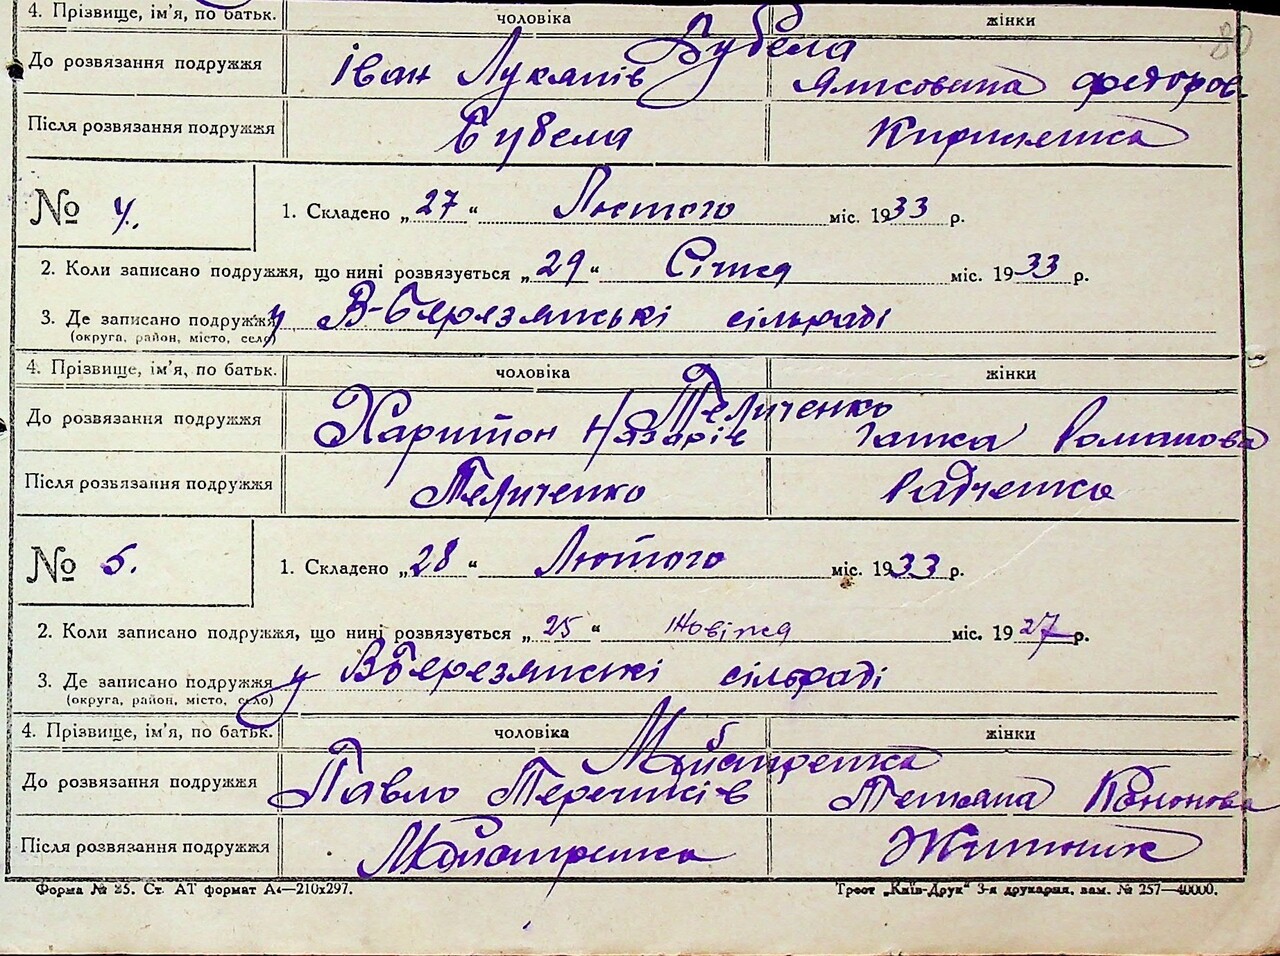 4. Прізвище, ім'я, по батьк. чоловіка жінки
80
Бубела
До розвязання подружжя Іван Лукапів Федоров.
Після розвязання подружжя Бубела Кириченко
№ 4. 1. Складено „27" Лютого міс. 1933 р.
2. Коли записано подружжя, що нині розвязується „29" Січня міс. 1933 р.
3. Де записано подружжя у В-Березянські сільраді
(округа, район, місто, село)
4. Прізвище, ім'я, по батьк. чоловіка жінки
Теличенко
До розвязання подружжя Харитон Назарів Ганка Романова
Після розвязання подружжя Теличенко Радченко
№ 5. 1. Складено „28" Лютого міс. 1933 р.
2. Коли записано подружжя, що нині розвязується „25" Жовтня міс. 1927 р.
3. Де записано подружжя у В Березянські сільраді
(округа, район, місто, село)
4. Прізвище, ім'я, по батьк. чоловіка жінки
Майстренко
До розвязання подружжя Павло Тетяна Кононова
Після розвязання подружжя Майстренко Житник
Форма № 25. Ст. АТ формат А4—210х297. Трест „Київ-Друк" 3-я друкарня, зам. № 257—40000.